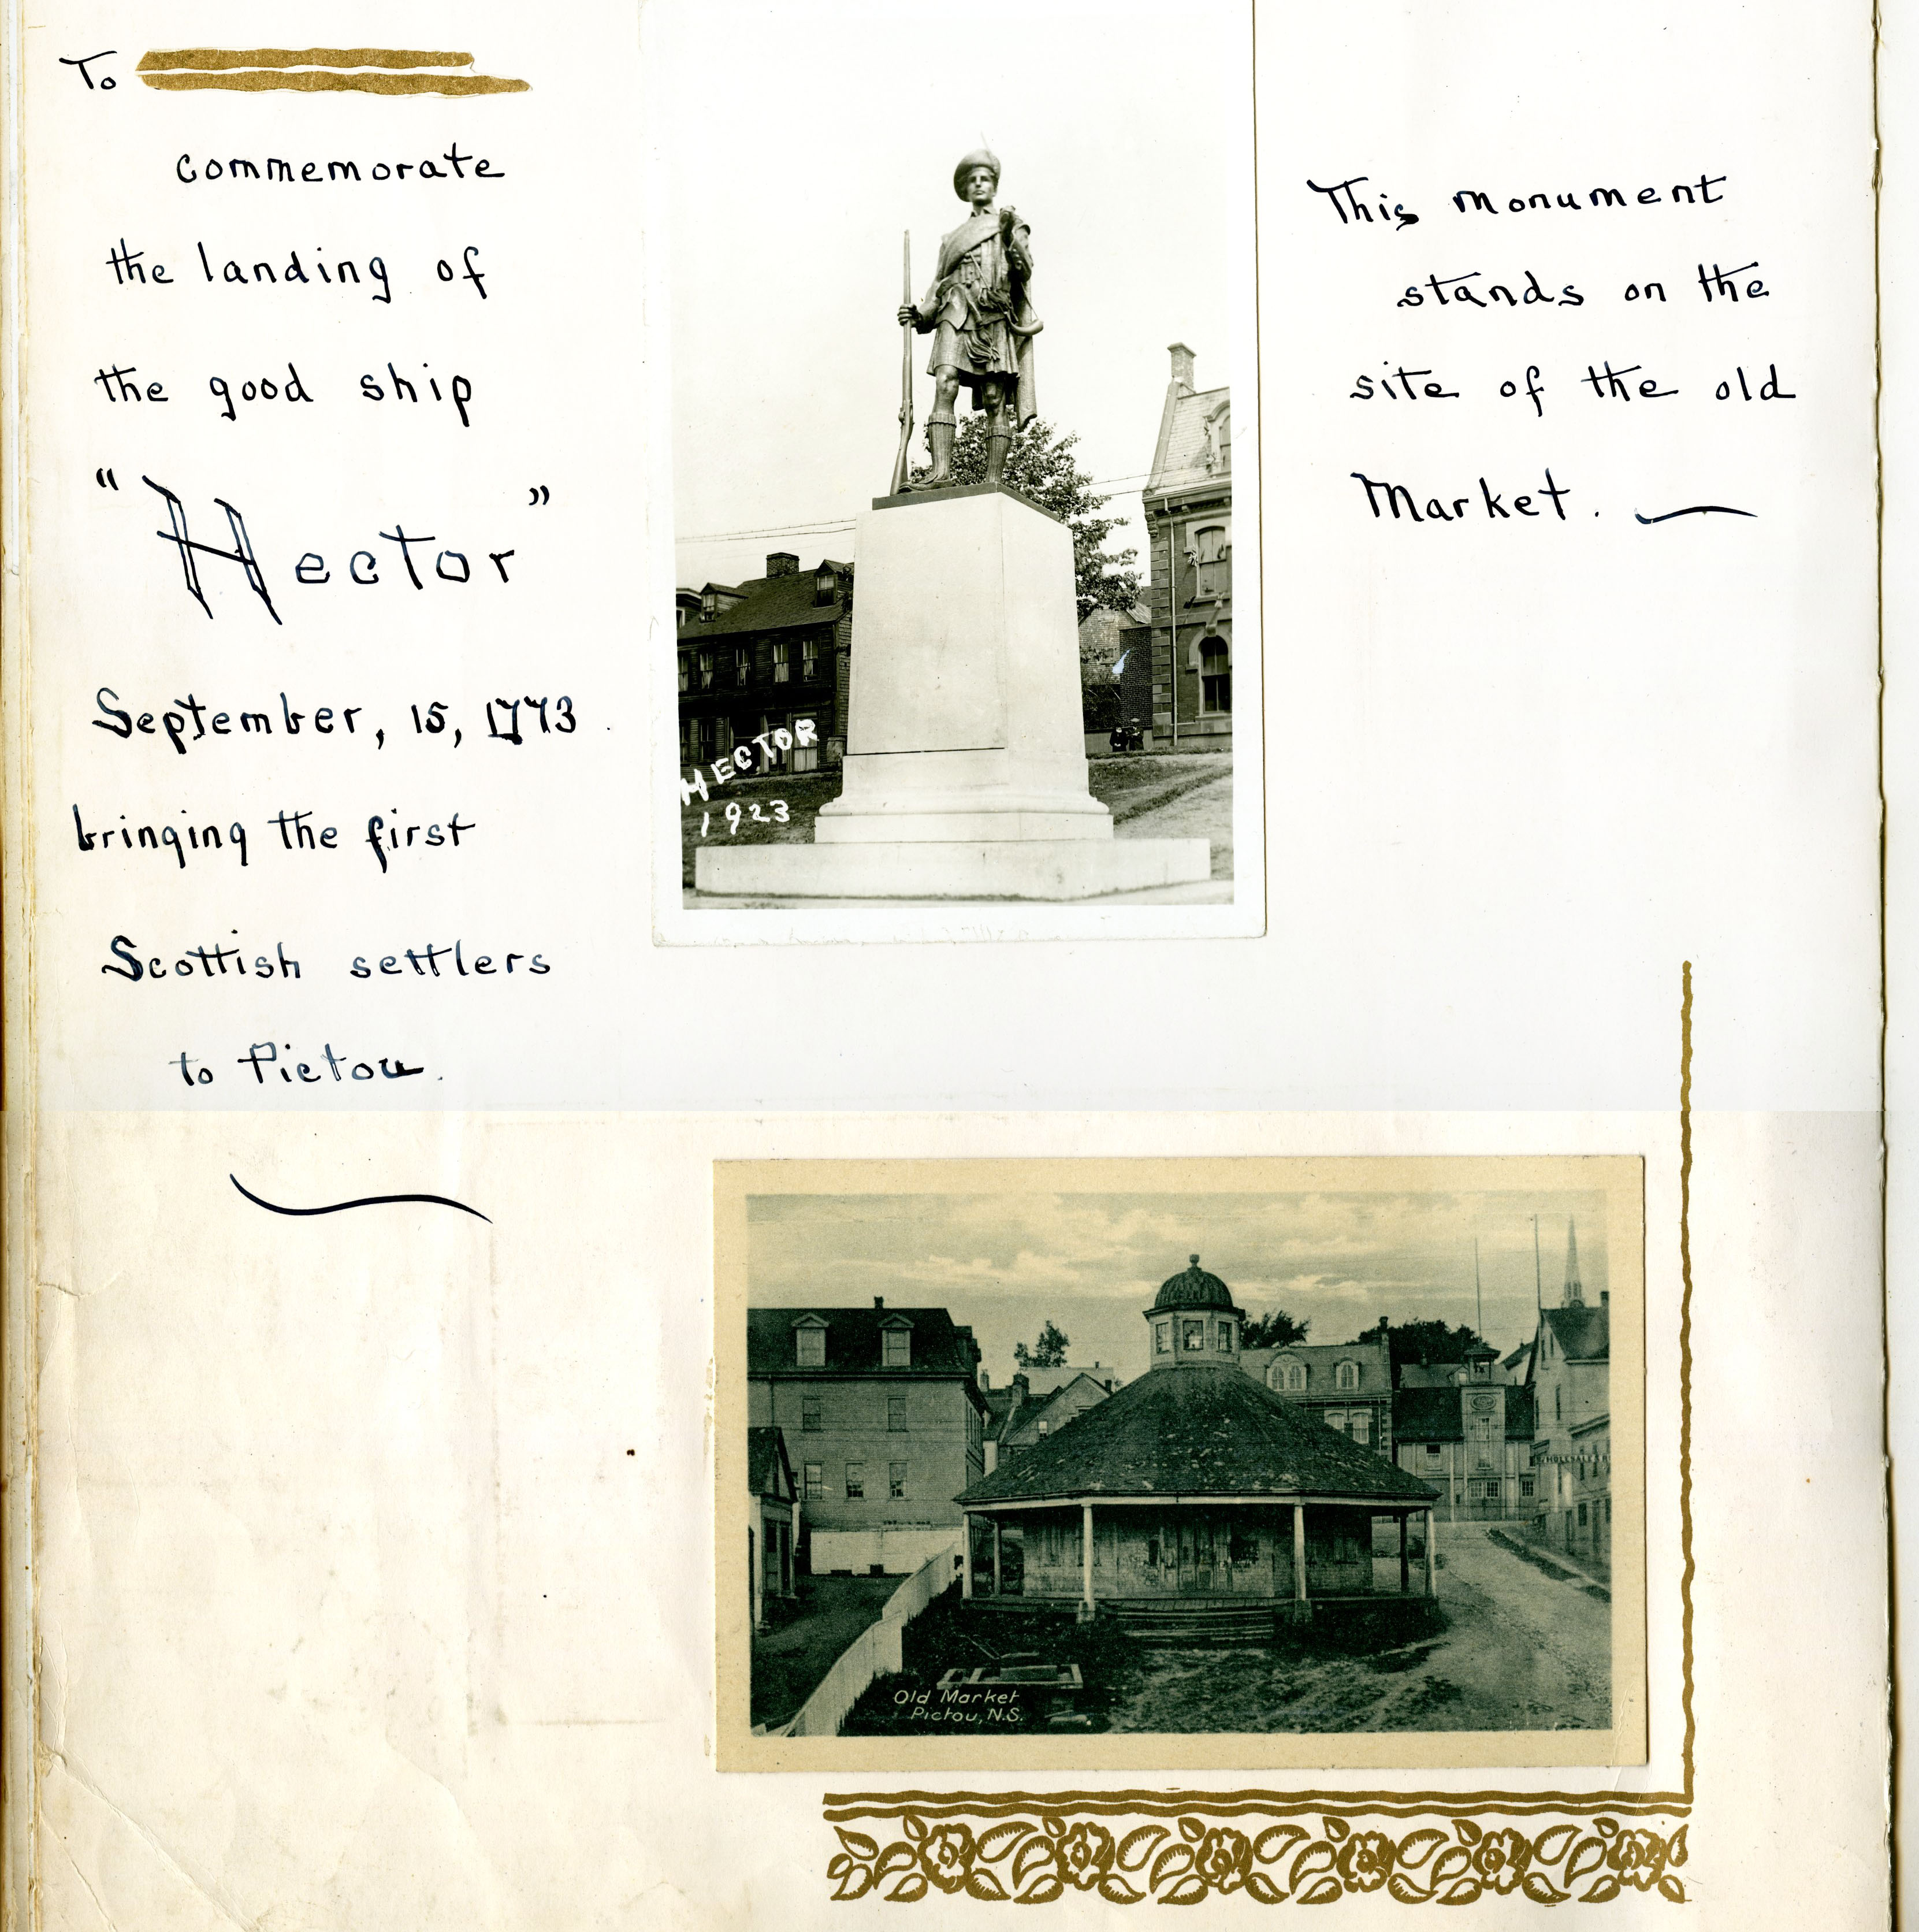 To
commemorate
the landing of
the good ship
"Hector"
September, 15, 1773.
bringing the first
Scottish settlers
to Pictou.
HECTOR
1923
This monument
stands on the
site of the old
Market.
WHOLESALE
Old Market
Pictou, N.S.